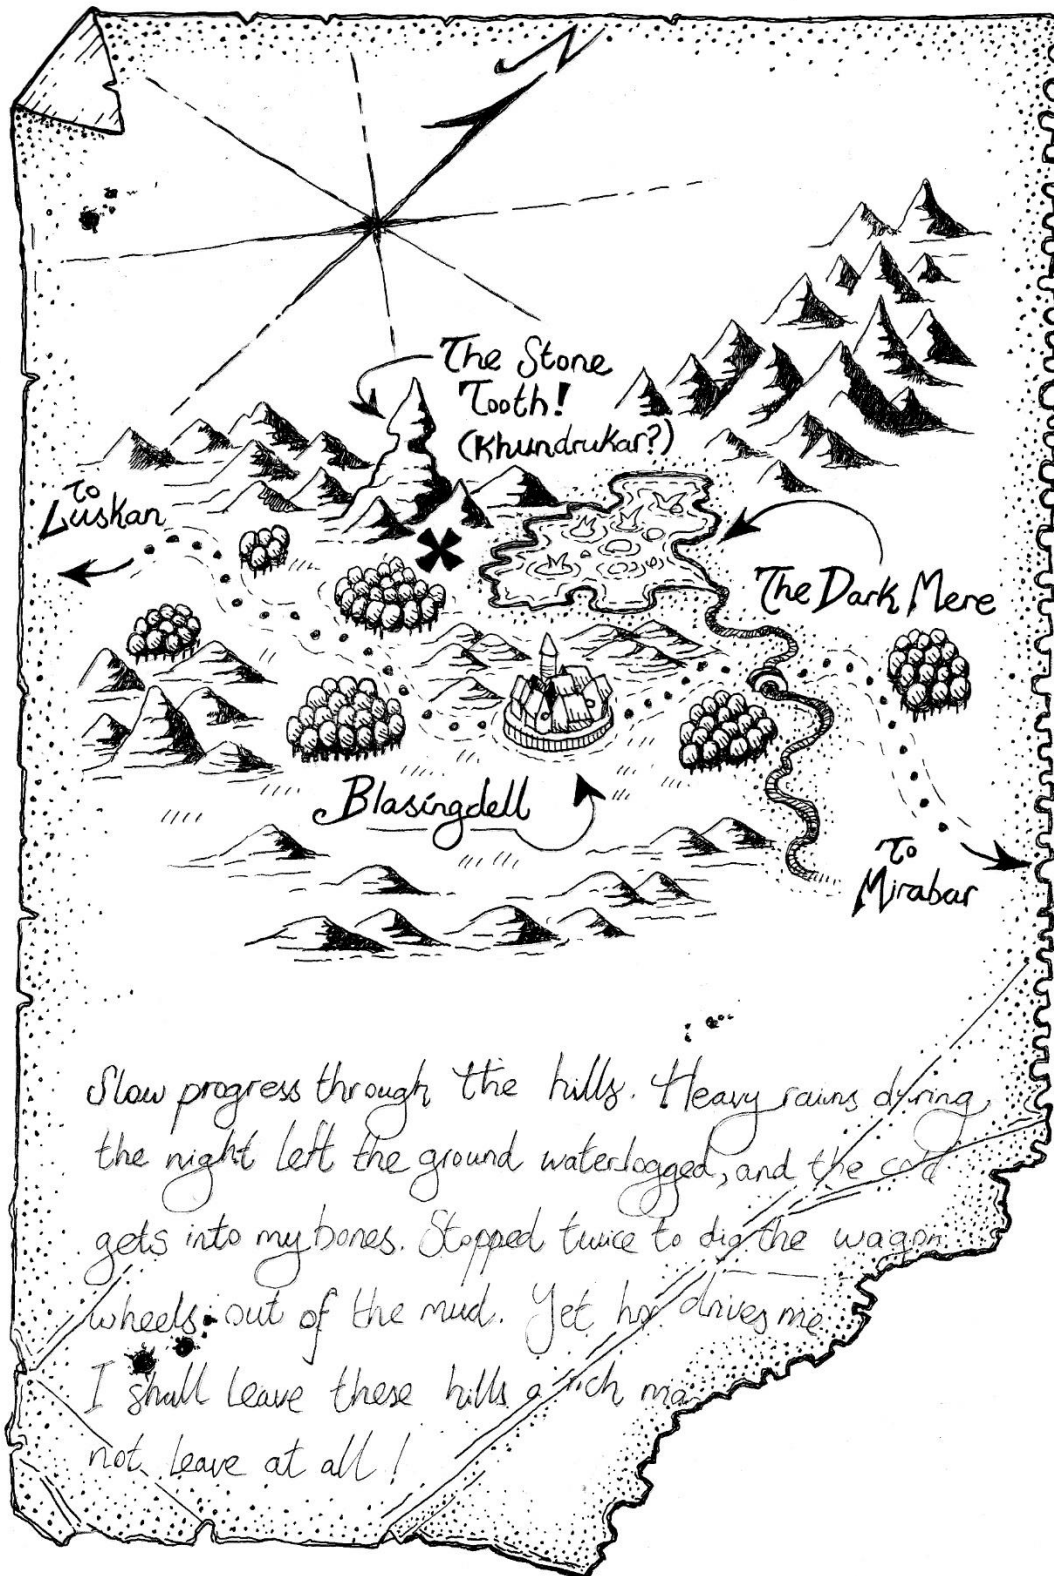 N
The Stone
Tooth!
(Khundrukar?)
To
Luskan
The Dark Mere
Blasingdell
To
Mirabar
Slow progress through the hills. Heavy rains during
the night left the ground waterlogged, and the cold
gets into my bones. Stopped twice to dig the wagon
wheels out of the mud. Yet drives me
I shall leave these hills a rich
not leave at all!